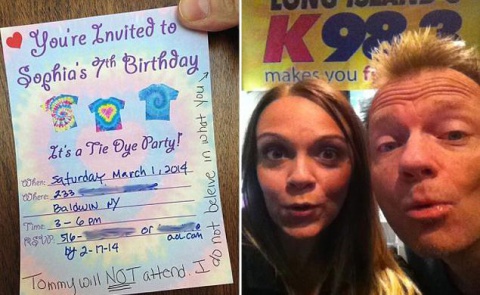 You're Invited to
Sophia's 7th Birthday
It's a Tie Dye Party!
When: Saturday March 1, 2014
Where: 233
Baldwin NY
Time: 3 - 6 pm
RSVP: 516- or aol.com
by 2-17-14
Tommy will NOT attend. I
do not beleive in what you
LONG ISLAND'S
K98.3
makes you f